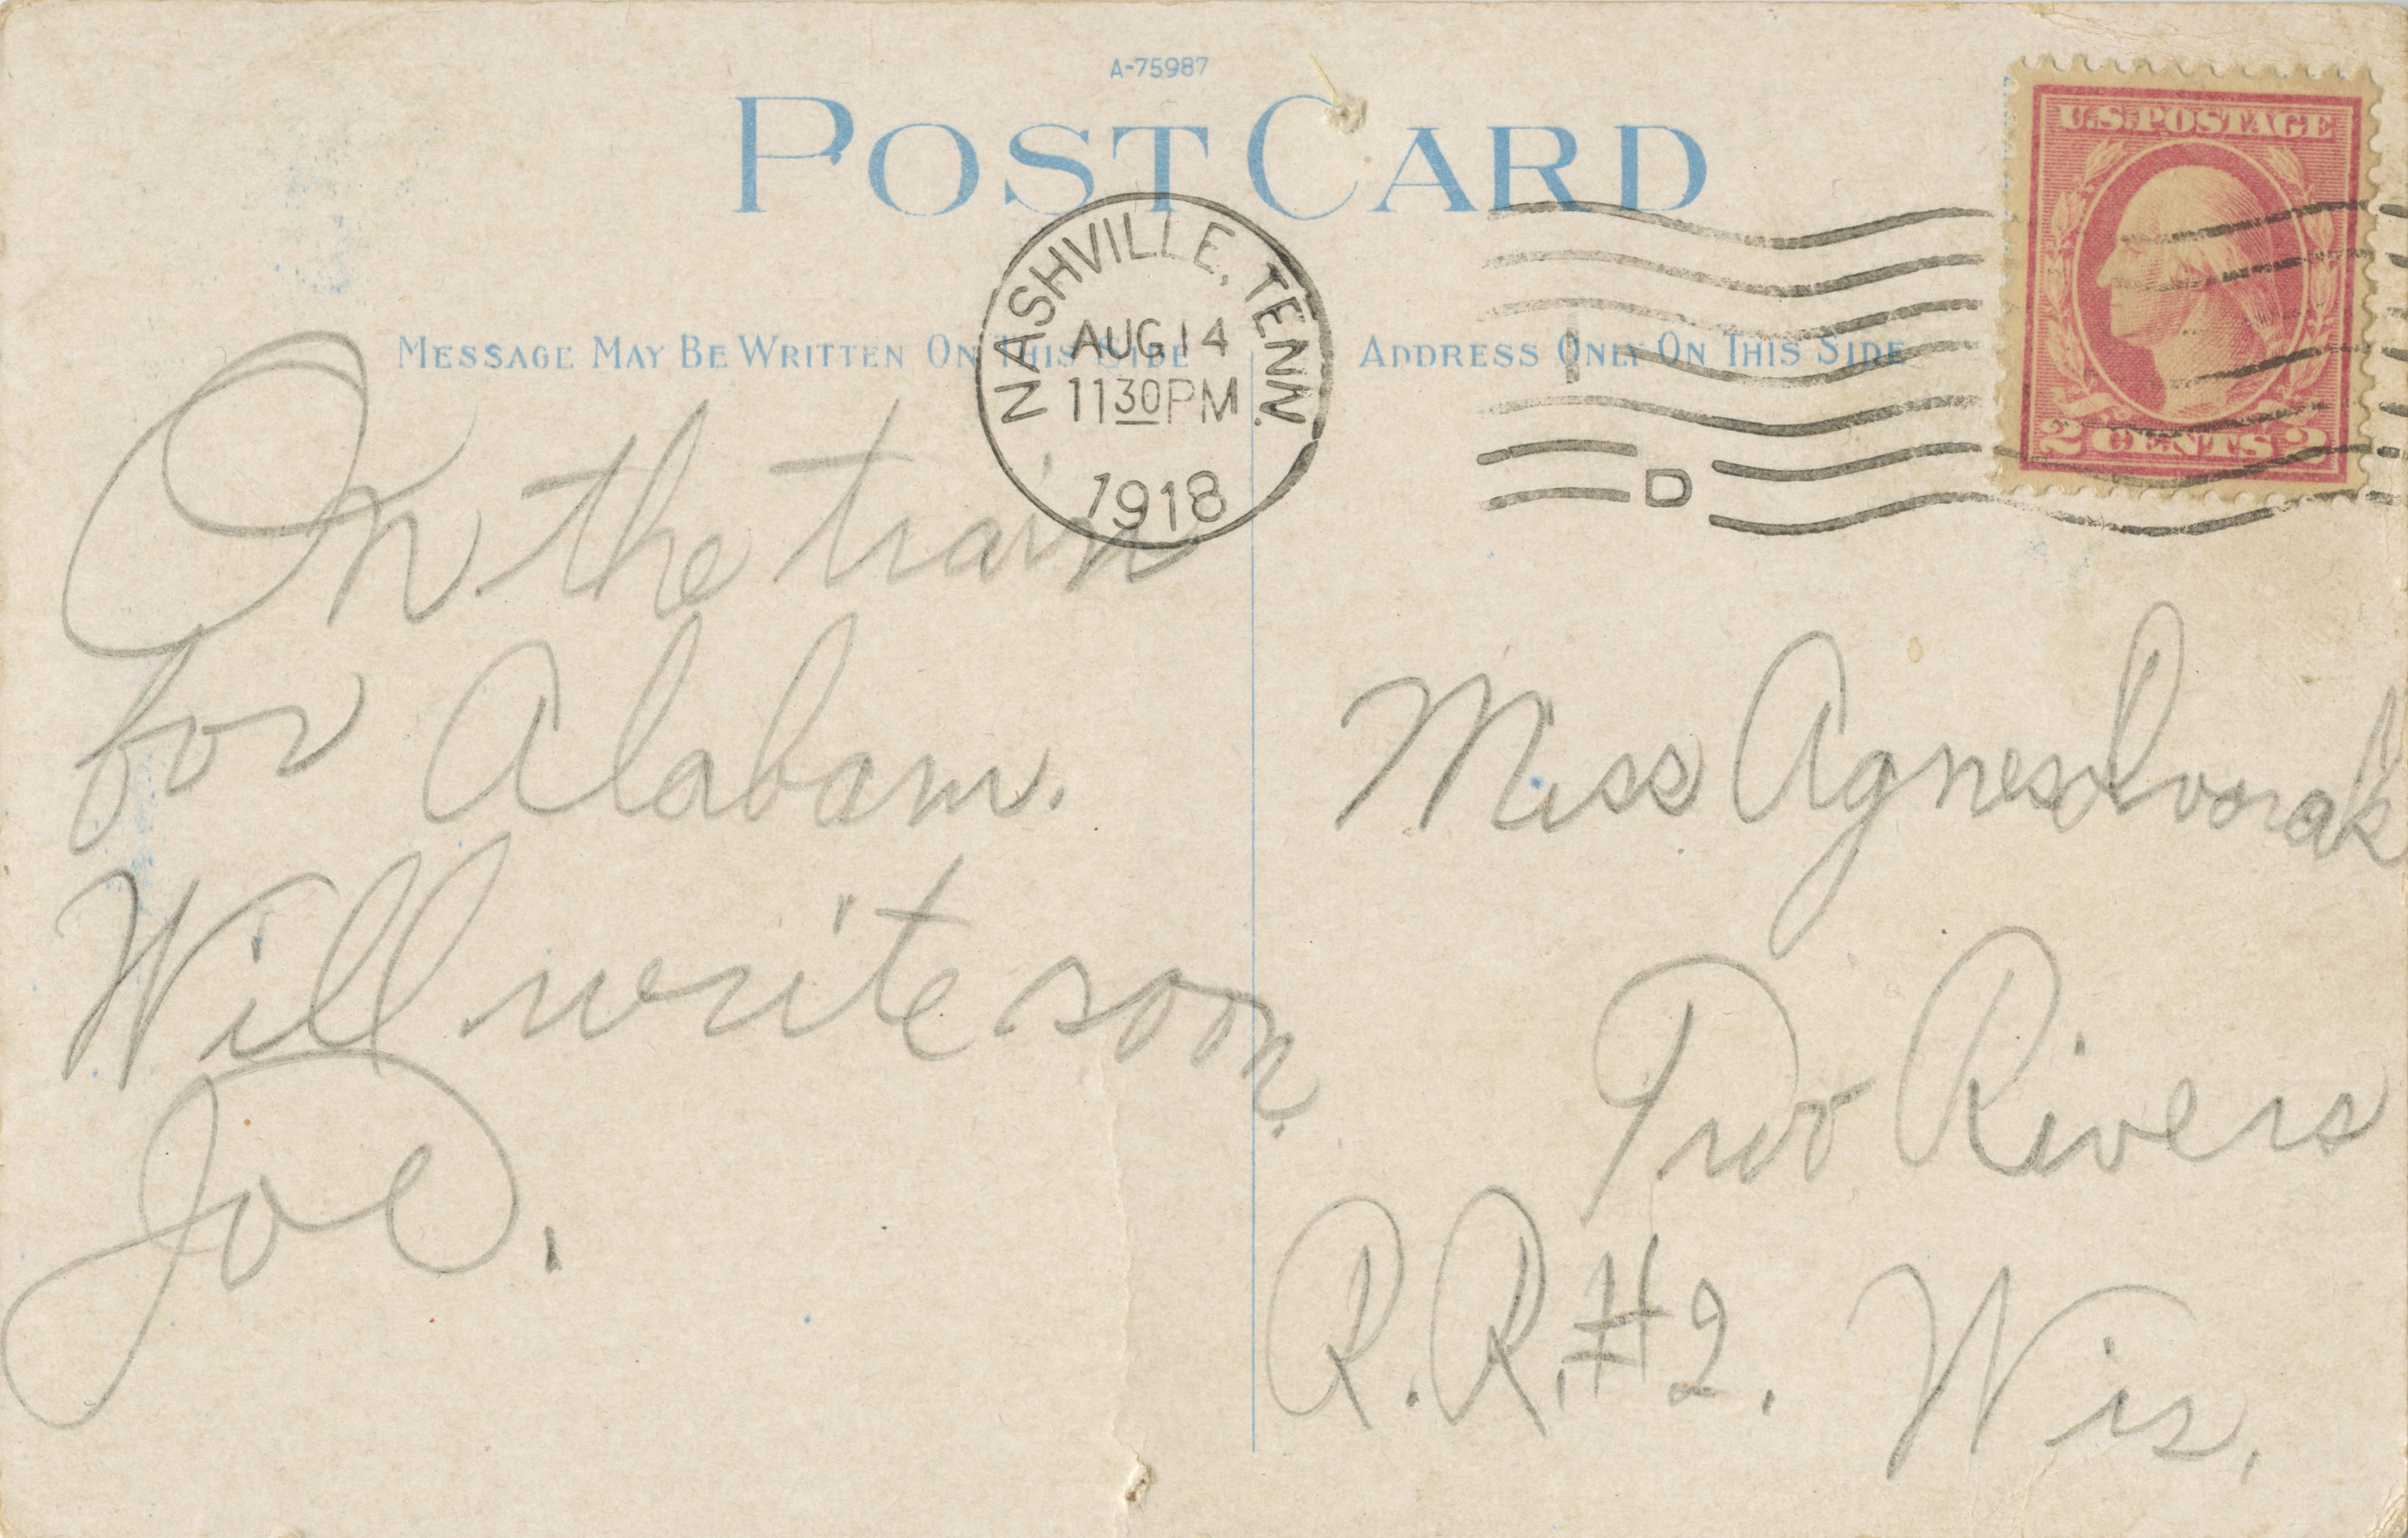 A-75987
POST CARD
MESSAGE MAY BE WRITTEN ON THIS SIDE
ADDRESS ONLY ON THIS SIDE
NASHVILLE, TENN.
AUG 14
1130PM
1918
D
U.S. POSTAGE
2 CENTS 2
On the train
for Alabam.
Will write soon.
Joe.
Miss Agnes Dvorak
Two Rivers
R.R. #2. Wis.